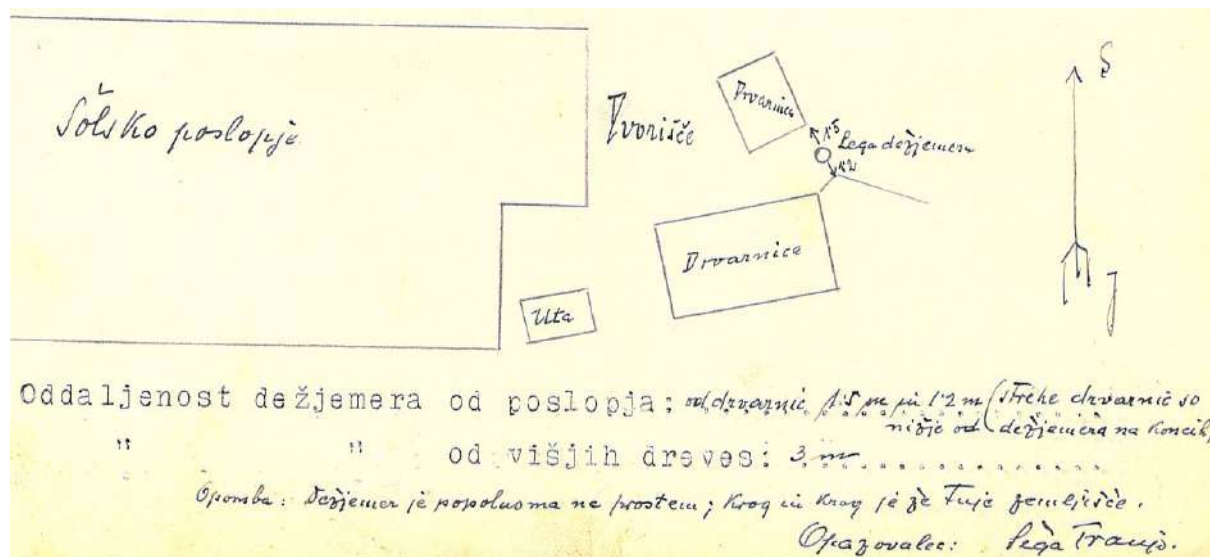 Šolsko poslopje
Dvorišče
Drvarnica
1'5
Lega dežjemera
1'2
Drvarnica
Uta
S
J
Oddaljenost dežjemera od poslopja: od drvarnic 1'5 m in 1'2 m (strehe drvarnic so
nižje od dežjemera na koncih)
" " od višjih dreves: 3 m
Opomba: Dežjemer je popolnoma na prostem; krog in krog je že tuje zemljišče.
Opazovalec: Lega Franjo.